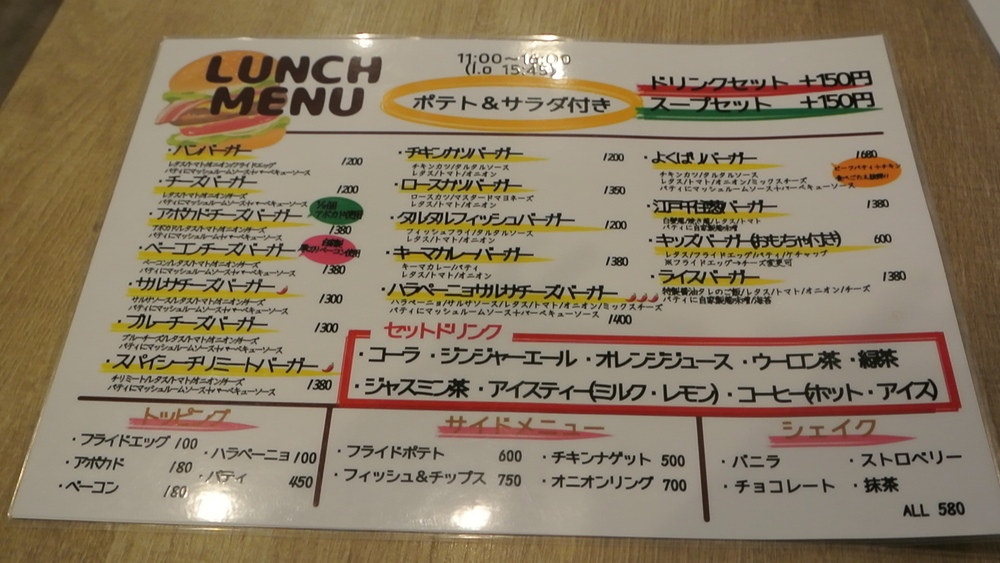 LUNCH
MENU
11:00～16:00
(l.o 15:45)
ポテト＆サラダ付き
ドリンクセット +150円
スープセット +150円
・ハンバーガー 1200
レタス/トマト/オニオン/フライドエッグ
パティにマッシュルームソース+バーベキューソース
・チーズバーガー 1200
レタス/トマト/オニオン/チーズ
パティにマッシュルームソース+バーベキューソース
・アボカドチーズバーガー 1380
アボカド/レタス/トマト/オニオン/チーズ
パティにマッシュルームソース+バーベキューソース
・ベーコンチーズバーガー 1380
ベーコン/レタス/トマト/オニオン/チーズ
パティにマッシュルームソース+バーベキューソース
・サルサチーズバーガー 1300
サルサソース/レタス/トマト/オニオン/チーズ
パティにマッシュルームソース+バーベキューソース
・ブルーチーズバーガー 1300
ブルーチーズ/レタス/トマト/オニオン/チーズ
パティにマッシュルームソース+バーベキューソース
・スパイシーチリミートバーガー 1380
チリミート/レタス/トマト/オニオン/チーズ
パティにマッシュルームソース+バーベキューソース
・チキンカツバーガー 1200
チキンカツ/タルタルソース
レタス/トマト/オニオン
・ロースカツバーガー 1350
ロースカツ/マスタードマヨネーズ
レタス/トマト/オニオン
・タルタルフィッシュバーガー 1200
フィッシュフライ/タルタルソース
レタス/トマト/オニオン
・キーマカレーバーガー 1380
キーマカレー/パティ
レタス/トマト/オニオン
・ハラペーニョサルサチーズバーガー 1400
ハラペーニョ/サルサソース/レタス/トマト/オニオン/ミックスチーズ
パティにマッシュルームソース+バーベキューソース
・よくばりバーガー 1680
チキンカツ/タルタルソース
レタス/トマト/オニオン/ミックスチーズ
パティにマッシュルームソース+バーベキューソース
ビーフパティ＋チキン
1380
レタス/トマト
パティに自家製
・キッズバーガー(おもちゃ付き) 600
レタス/フライドエッグ/パティ/ケチャップ
※フライドエッグ→チーズ変更可
・ライスバーガー 1380
特製醤油タレのご飯/レタス/トマト/オニオン/チーズ
パティに自家製
セットドリンク
・コーラ ・ジンジャーエール ・オレンジジュース ・ウーロン茶 ・緑茶
・ジャスミン茶 ・アイスティー(ミルク・レモン) ・コーヒー(ホット・アイス)
トッピング
・フライドエッグ 100 ・ハラペーニョ 100
・アボカド 180 ・パティ 450
・ベーコン 180
サイドメニュー
・フライドポテト 600 ・チキンナゲット 500
・フィッシュ＆チップス 750 ・オニオンリング 700
シェイク
・バニラ ・ストロベリー
・チョコレート ・抹茶
ALL 580